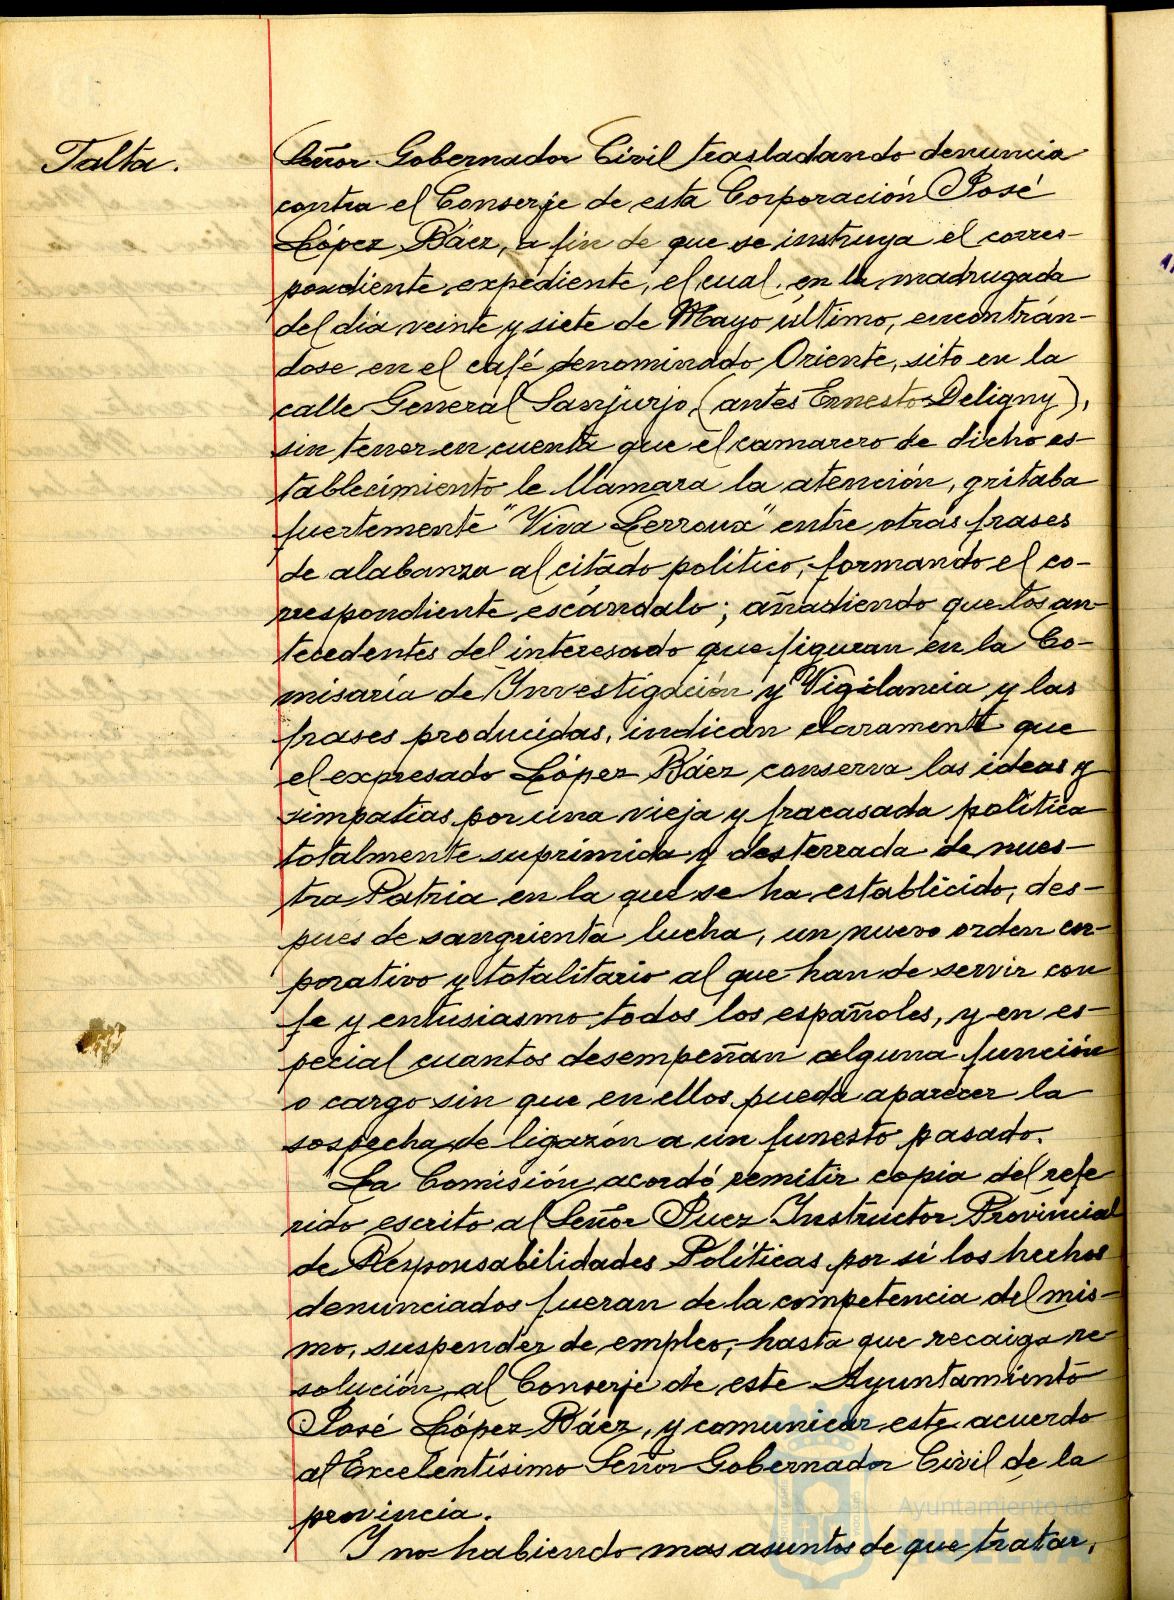 Falta.
Señor Gobernador Civil trasladando denuncia
contra el Conserje de esta Corporación José
López Báez, a fin de que se instruya el corres-
pondiente expediente, el cual en la madrugada
del día veinte y siete de Mayo último, encontrán-
dose en el café denominado Oriente, sito en la
calle General Sanjurjo, (antes Ernesto Deligny),
sin tener en cuenta que el camarero de dicho es-
tablecimiento le llamara la atención, gritaba
fuertemente "Viva Lerroux" entre otras frases
de alabanza al citado político, formando el co-
rrespondiente escándalo; añadiendo que los an-
tecedentes del interesado que figuran en la Co-
misaría de Investigación y Vigilancia y las
frases producidas, indican claramente que
el expresado López Báez conserva las ideas y
simpatias por una vieja y fracasada política
totalmente suprimida y desterrada de nues-
tra Patria en la que se ha establecido, des-
pués de sangrienta lucha, un nuevo orden cor-
porativo y totalitario al que han de servir con
fe y entusiasmo todos los españoles, y en es-
pecial cuantos desempeñan alguna función
o cargo sin que en ellos pueda aparecer la
sospecha de ligazón a un funesto pasado.
La Comisión acordó remitir copia del refe
rido escrito al Señor Juez Instructor Provincial
de Responsabilidades Políticas por si los hechos
denunciados fueran de la competencia del mis-
mo, suspender de empleo, hasta que recaiga re
solución, al Conserje de este Ayuntamiento
José López Báez, y comunicar este acuerdo
al Excelentísimo Señor Gobernador Civil de la
provincia.
Y no habiendo mas asuntos de que tratar,
Ayuntamiento de
HUELVA